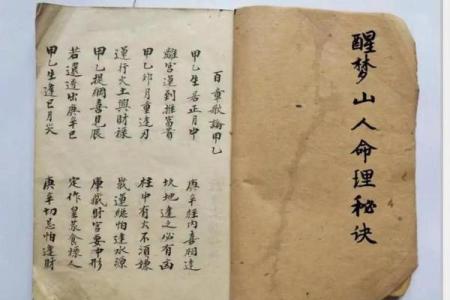 醒梦山人命理秘诀
百章歌論甲乙
甲乙生居正月中 庚辛柱内喜相逢
離宮運到推富貴 坎地逢之必有凶
甲乙卯月重逢刃 柱中有火不須嫌
運行火土興財祿 歲運總怕逢水源
甲乙提綱喜見辰 庫藏財官要冲形
若還透出庚辛巳 定作皇家食祿人
甲乙生逢巳月炎 庚辛切忌怕逢財